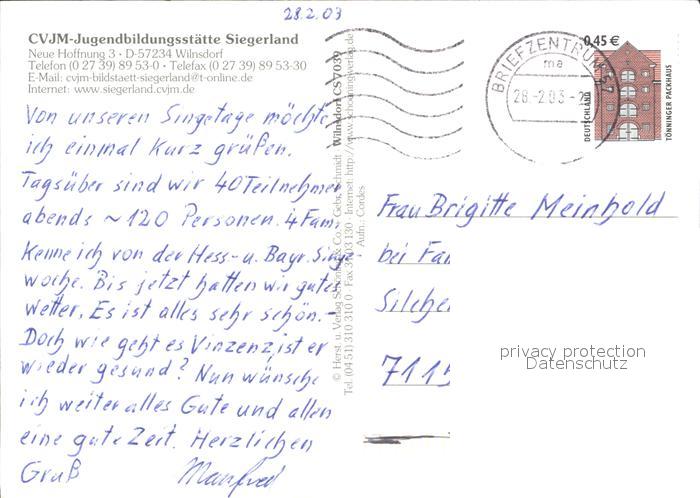 28.2.03
CVJM-Jugendbildungsstätte Siegerland
Neue Hoffnung 3 · D-57234 Wilnsdorf
Telefon (0 27 39) 89 53-0 · Telefax (0 27 39) 89 53-30
E-Mail: cvjm-bildstaett-siegerland@t-online.de
Internet: www.siegerland.cvjm.de
Von unseren Singetage möchte
ich einmal kurz grüßen.
Tagsüber sind wir 40 Teilnehmer
abends ~ 120 Personen. 4 Fam.
kenne ich von der Hess- u. Bayr. Singe-
woche. Bis jetzt hatten wir gutes
Wetter. Es ist alles sehr schön. -
Doch wie geht es Vinzenz, ist er
wieder gesund? Nun wünsche
ich weiter alles Gute und allen
eine gute Zeit. Herzlichen
Gruß Manfred
© Herst. u. Verlag Schöning & Co. · Gebr. Schmidt Wilnsdorf CS 7039
Tel. (04 51) 310 310 0 · Fax 31 03 130 · Internet: http://www.schoeningverlag.de
Aufn.: Cordes
BRIEFZENTRUM 57
ma
28.-2.03-2
0,45 €
DEUTSCHLAND
TÖNNINGER PACKHAUS
Frau Brigitte Meinhold
bei Fa
Silche
7115
privacy protection
Datenschutz